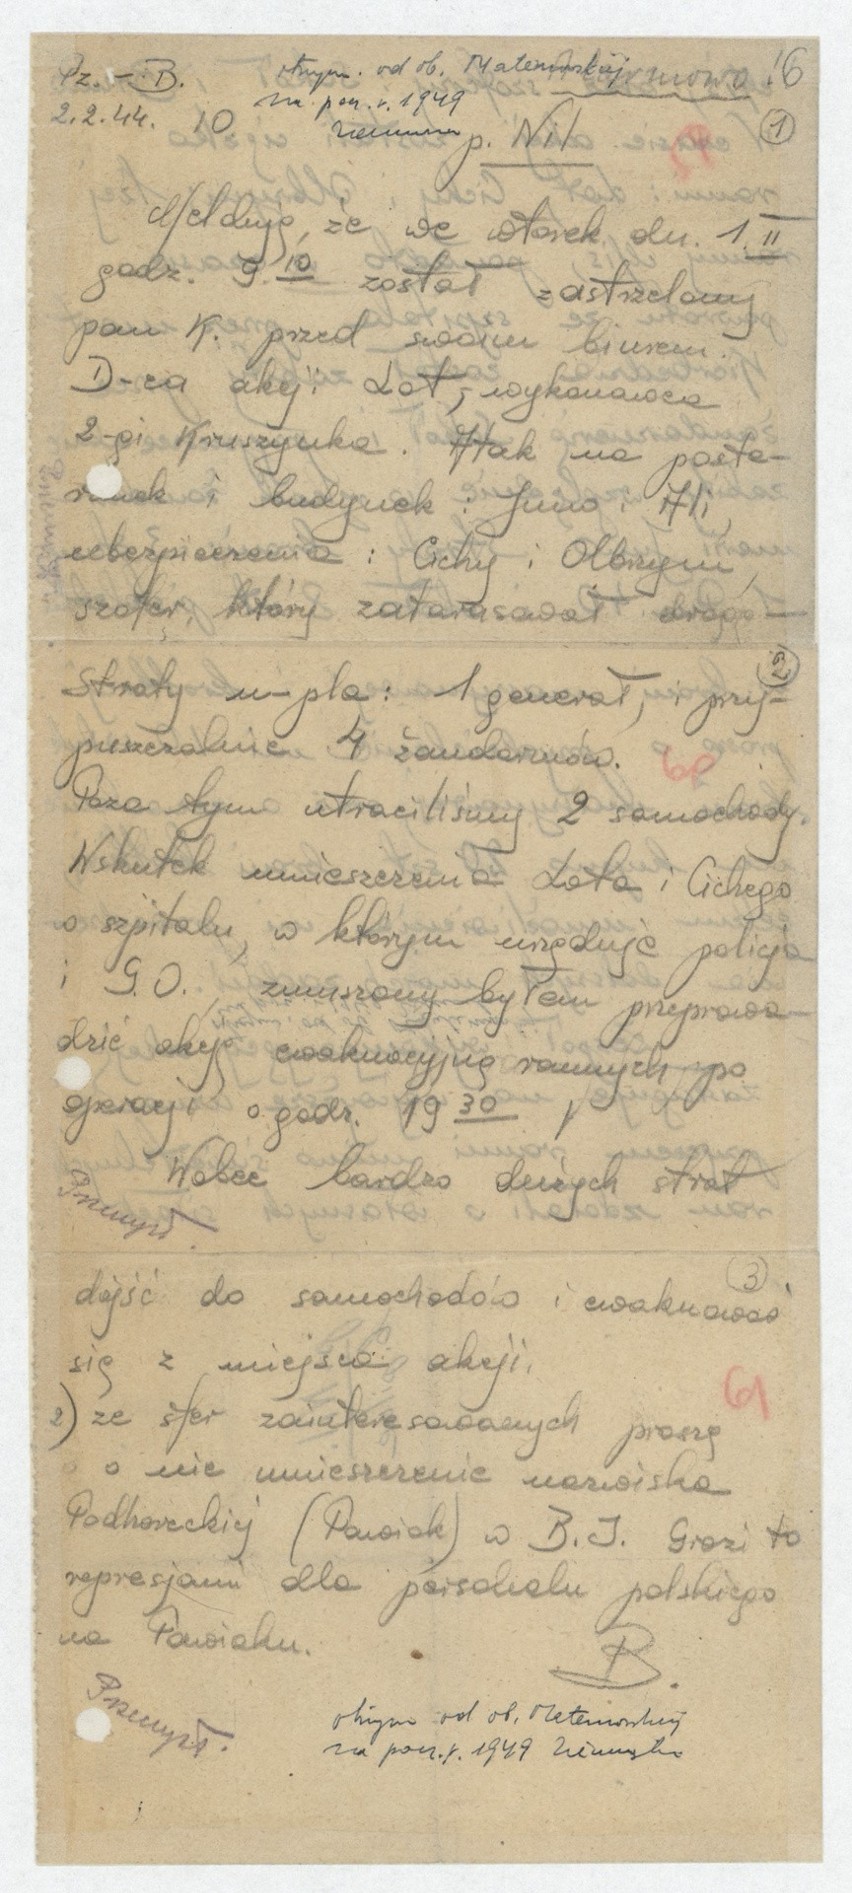 Pz. – B. otrzym. od ob. Maternowskiej 16
2.2.44. 10 na pocz. r. 1949 1
p. Nil
Melduję, że we wtorek dn. 1.II
godz. 9.10 został zastrzelony
pan K. przed swoim biurem.
D-ca akcji Lot, wykonawca
2-gi Kruszynka. Atak na poste-
runek i budynek: Juno i Ali,
ubezpieczenia: Cichy i Olbrzym,
szofer, który zatarasował drogę –
2
Straty n-pla: 1 generał, i przy-
puszczalnie 4 żandarmów.
60
Poza tym utraciliśmy 2 samochody.
Wskutek umieszczenia Lota i Cichego
w szpitalu, w którym urzęduje policja
i G.O., zmuszony byłem przeprowa-
dzić akcję ewakuacyjną rannych po
operacji o godz. 19 30
Wobec bardzo dużych strat
Przemysł.
3
dojść do samochodów i ewakuować
się z miejsca akcji.
61
2) ze sfer zainteresowanych proszę
o nie umieszczenie nazwiska
Podhoreckiej (Pawiak) w B.I. Grozi to
represjami dla personelu polskiego
na Pawiaku.
B.
Przemysł.
otrzym od ob. Maternowskiej
na pocz. r. 1949